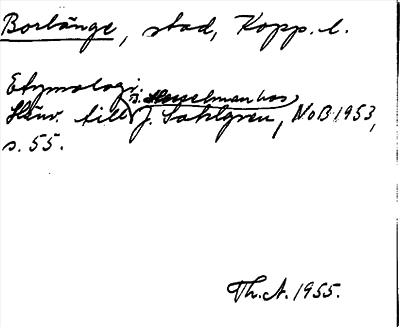 Borlänge, stad, Kopp. l.
Etymologi.
B. Hesselman hos
Hänv. till J. Sahlgren, NoB 1953,
s. 55.
Th. A. 1955.